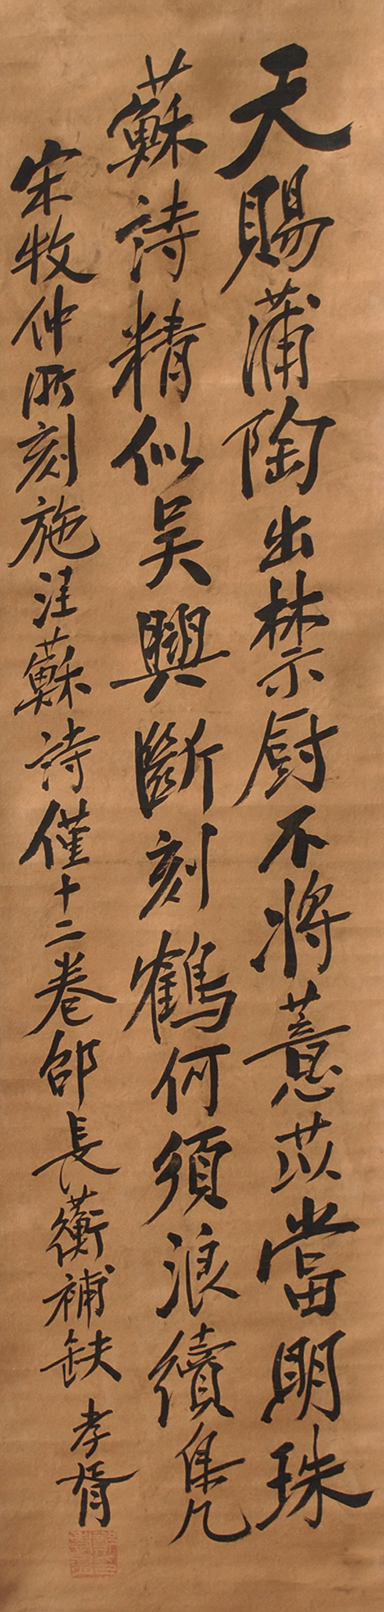 天賜蒲陶出禁厨不將薏苡當明珠
蘇詩精似吴興斷刻鶴何須浪續鳧
宋牧仲所刻施注蘇詩僅十二卷邵長蘅補缺 孝胥